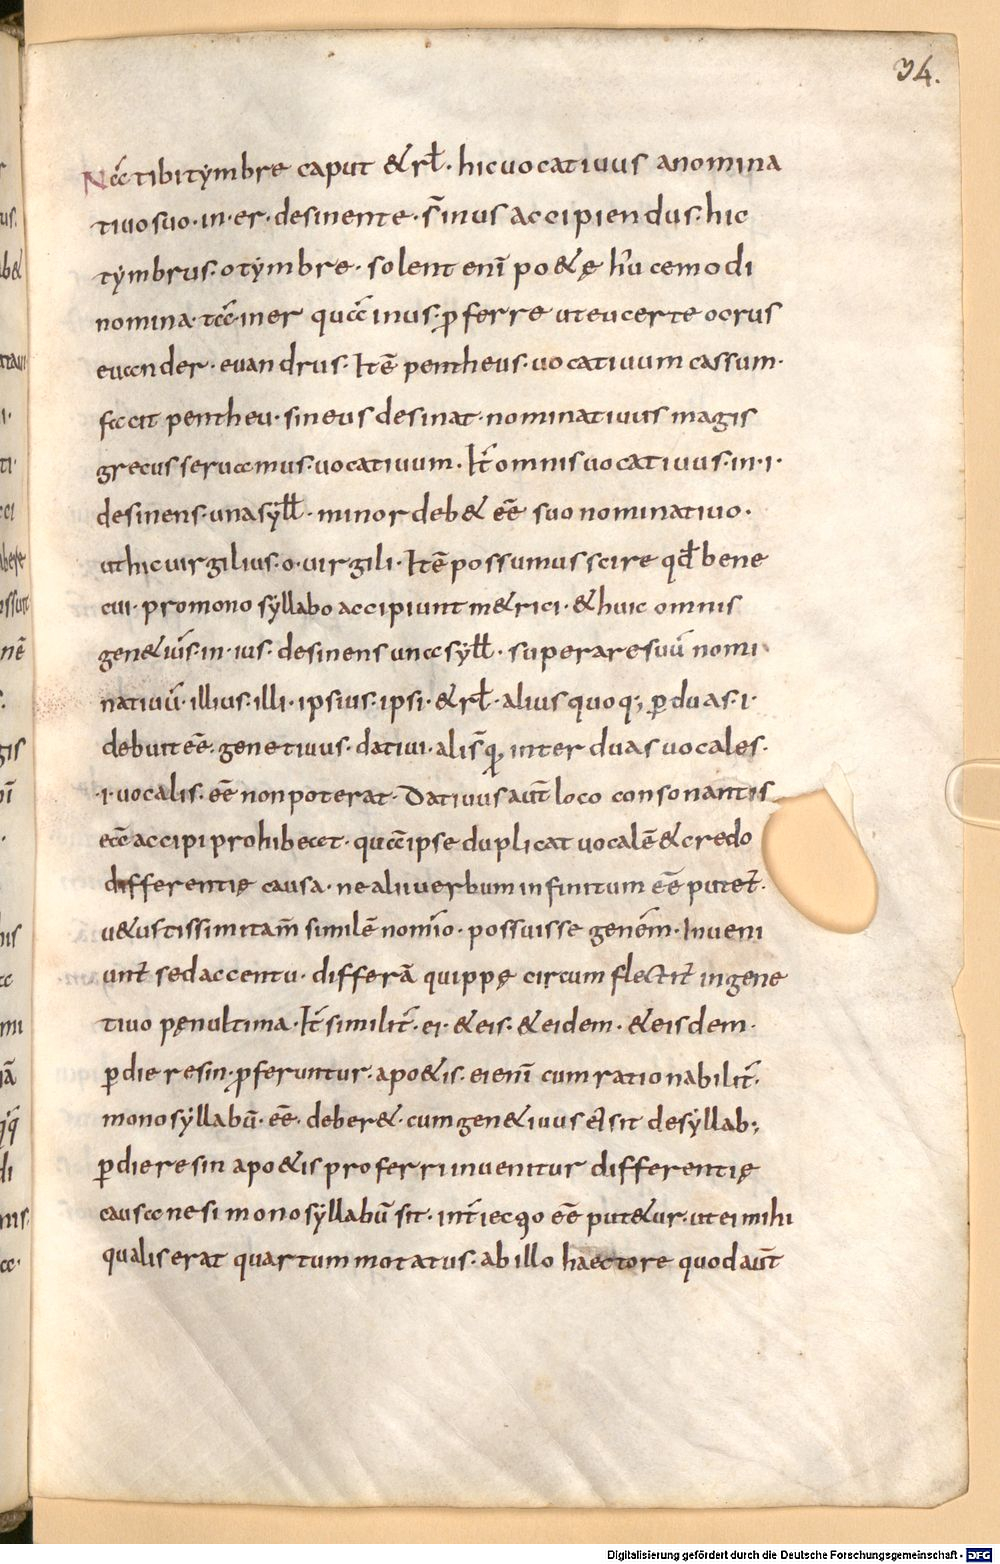 34.
Nā tibi tymbre caput &rł· hic uocatiuus anomina
tiuo suo· in· er· desinente· s̄ inus accipiendus· hic
tymbrus· o tymbre· solent enī po&ę hūcemodi
nomina· tā· in er quā in us· p̄ferre ut eucerte ocrus
euander· euandrus· Itē pentheus· uocatiuum cassum·
facit pentheu· sin eus desinat· nominatiuus magis
grecus seruamus· uocatiuum· It̄ omnis uocatiuus· in· i·
desinens· una syll̄· minor deb& eē suo nominatiuo·
ut hic uirgilius· o· uirgili· Itē possumus scire qđ bene
cui· pro monosyllabo accipiunt m&rici· & huic omnis
gen&iūs· in· ius· desinens una syll̄· superare suū nomi
natiuū· illius· illi· ipsius· ipsi· &rł· alius quoq; ꝑ duas· i·
debuit eē· genetiuus· datiui· alis̄q̄, inter duas uocales·
·i· uocalis· eē non poterat· Datiuus aūt loco consonantis
eā accipi prohibeat· quā ipse duplicat uocalē & credo
differentię causa· ne alii uerbum infinitum eē putet̄·
u&ustissimi tam̄ similē nomīo· possuisse genēm· Inueni
unt̄ sed accentu· differā quippę circumflectit̄ in gene
tiuo pęnultima· It̄ similit̄· ei· &eis· &eidem· &eisdem·
ꝑ dieresin· p̄feruntur· apo&is· ei enī cum rationabilit̄·
monosyllabū· eē· deber&· cum gen&iuus ei sit desyllab;
ꝑ dieresin apo&is proferri inuenitur differentię
causa ne si monosyllabū sit· int̄iecꝯo eē put&ur· ut ei mihi
qualis erat quartum motatus· ab illo haectore quod aūt
Digitalisierung gefördert durch die Deutsche Forschungsgemeinschaft - DFG